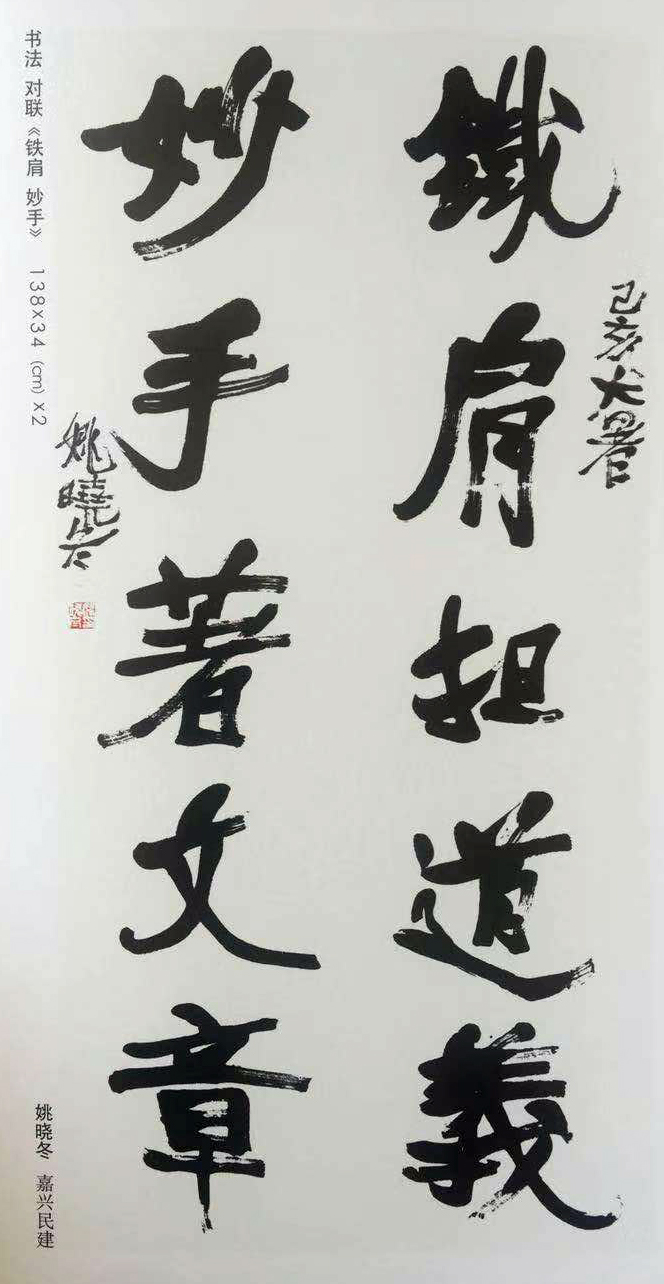 鐵肩担道義
己亥大暑
妙手著文章
姚曉冬
书法 对联《铁肩 妙手》 138×34 (cm) ×2
姚晓冬 嘉兴民建